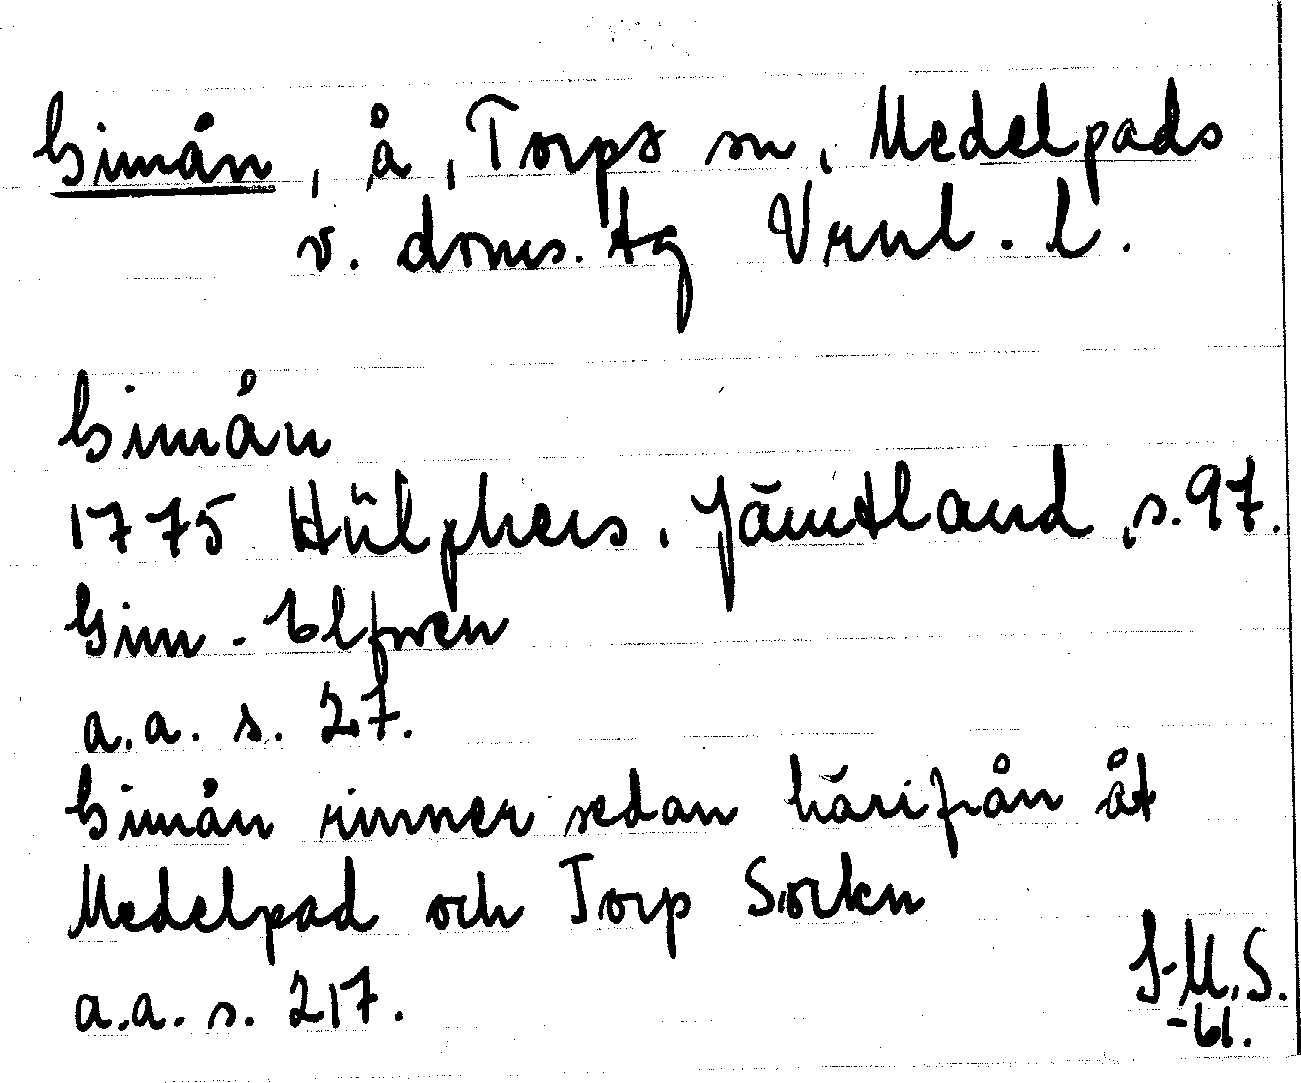 Gimån, å, Torps sn, Medelpads
v. doms. tg Vrnl. l.
Gimån
1775 Hülphers, Jämtland, s. 97.
Gim-Elfwen
a.a. s. 27.
Gimån rinner sedan härifrån åt
Medelpad och Torp Sorken
a.a. s. 217.
I-M.S.
-61.